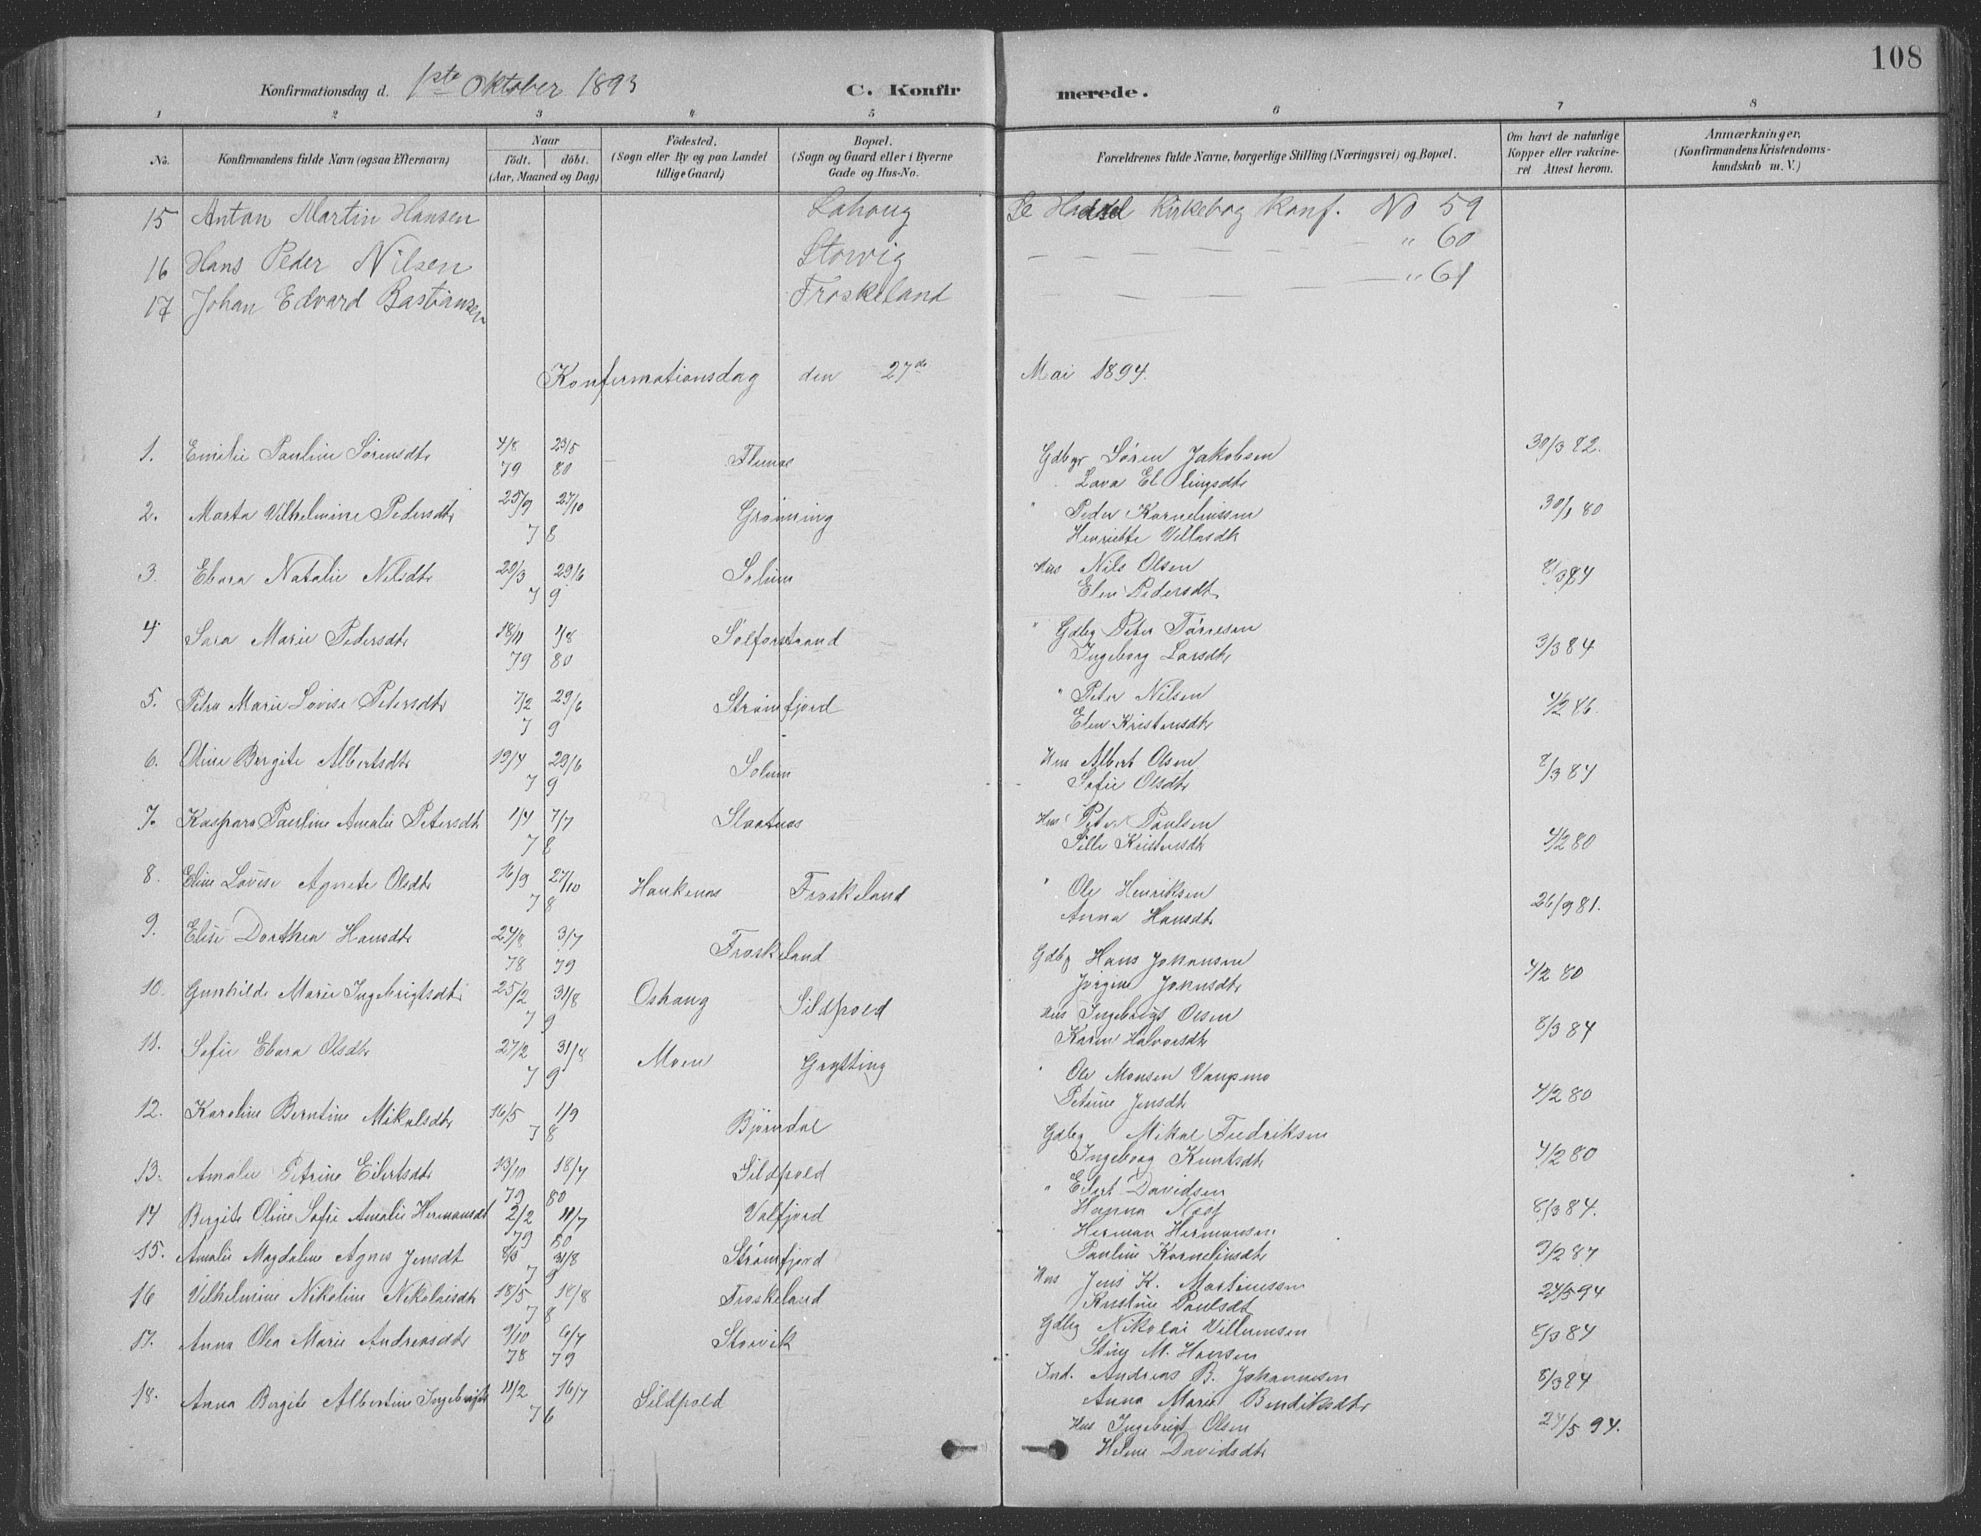 108
Konfirmationsdag d. 1ste Oktober 1893 C. Konfirmerede.
1 2 3 4 5 6 7 8
No. Konfirmandens fulde Navn (ogsaa Efternavn) Naar født. døbt. (Aar, Maaned og Dag) Födested. (Sogn eller By og paa Landet tillige Gaard) Bopæl. (Sogn og Gaard eller i Byerne Gade og Hus-No. Forældrenes fulde Navne, borgerlige Stilling (Næringsvei) og Bopæl. Om havt de naturlige Kopper eller vakcineret Attest herom. Anmærkninger. (Konfirmandens Kristendomskundskab m. V.)
15 Anton Martin Hansen Lahaug Se Hadsel Kirkebog Konf. No 59
16 Hans Peder Nilsen Storvig — — — — " 60
17 Johan Edvard Bastiansen Froskeland — — — — " 61
Konfirmationsdag den 27de Mai 1894.
1. Emilie Pauline Sørensdtr 4/8 79 23/5 80 Flenæs Gdbgr Søren Jakobsen 30/3 82.
Lava Ellingsdtr
2. Marta Vilhelmine Pedersdtr 25/9 27/10 78 Grønning " Peder Korneliussen 30/1 80
Henriette Villasdtr
3. Ebara Natalie Nilsdtr 20/3 29/6 79 Solum Hus Nils Olsen 8/3 84
Elen Pedersdtr
4 Sara Marie Pedersdtr 18/11 79 1/8 80 Selforstrand " Gdbg Peter Tørresen 3/3 84
Ingeborg Larsdtr
5. Petra Marie Lovise Petersdtr 7/2 29/6 79 Strømfjord " Peter Nilsen 4/2 86.
Elen Kristensdtr
6. Oline Bergite Albertsdtr 19/4 29/6 79 Solum Hus Albert Olsen 8/3 84
Sofie Olsdtr
7. Kaspara Pauline Amalie Petersdtr 1/4 7/7 78 Slaatnes Hus Peter Paulsen 4/2 80
Sille Kristensdtr
8. Eline Lovise Agnete Olsdtr 16/9 27/10 78 Haukenes Froskeland " Ole Henriksen 26/9 81.
Anna Hansdtr
9. Elise Dorthea Hansdtr 24/8 78 3/7 79 Froskeland Gdbg Hans Johansen 4/2 80
Jørgine Johnsdtr
10. Gunhilde Marie Ingebrigtsdtr 25/2 31/8 79 Oshaug Sildpold Hus Ingebrigt Olsen 8/3 84
Karen Halvorsdtr
11. Sofie Ebara Olsdtr 27/2 31/8 79 Moen Grytting " Ole Monsen Vangsmo 4/2 80
Petrine Jensdtr
12. Karoline Berntine Mikalsdtr 16/5 1/9 78 Bjørndal Gdbg Mikal Fredriksen 4/2 80
Ingeborg Knutsdtr
13. Amalie Petrine Eilertsdtr 13/10 79 18/7 80 Sildpold " Eilert Davidsen 8/3 84.
Hanna Næss
14 Bergite Oline Sofie Amalie Hermansdt 2/2 79 11/7 80 Valfjord Herman Hermansen 9/2 87
Pauline Kornelinsdtr
15. Amalie Magdalene Agnes Jensdt 8/3 31/8 79 Strømfjord Hus Jens K. Martinussen 24/5 94
Kristine Paulsdt
16 Vilhelmine Nikoline Nikolaisdtr 18/5 18/8 78 Froskeland Gdbg Nikolai Villumsen 8/3 84
M. Hansen
17. Anna Olea Marie Andreasdtr 9/10 78 6/7 79 Storvik Ind. Andreas B. Johannesen 8/3 84
Anna Marie Bendiksdtr
18. Anna Bergite Albertine Ingebrigtsdt 11/2 16/7 76 Sildpold Hus Ingebrigt Olsen 24/5 94.
Helene Davidsdtr